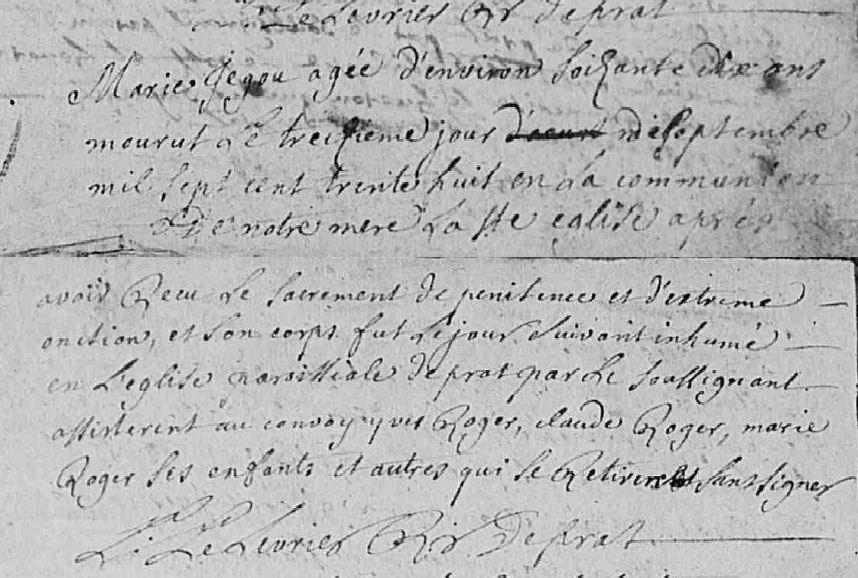 Le Levrier Rr de prat
Marie Jegou agée d'environ soixante dix ans
mourut Le treisieme jour d'aoust de septembre
mil sept cent trente huit en La communion
De notre mere La Ste eglise après
avoir Recu Le sacrement de penitence et d'extreme
onction, et son corps fut Le jour suivant inhumé
en L'eglise paroissiale de prat par Le soussignant
assisterent au convoy yves Roger, claude Roger, marie
Roger ses enfants et autres qui se Retirerent sans signer
Le Levrier Rr De prat